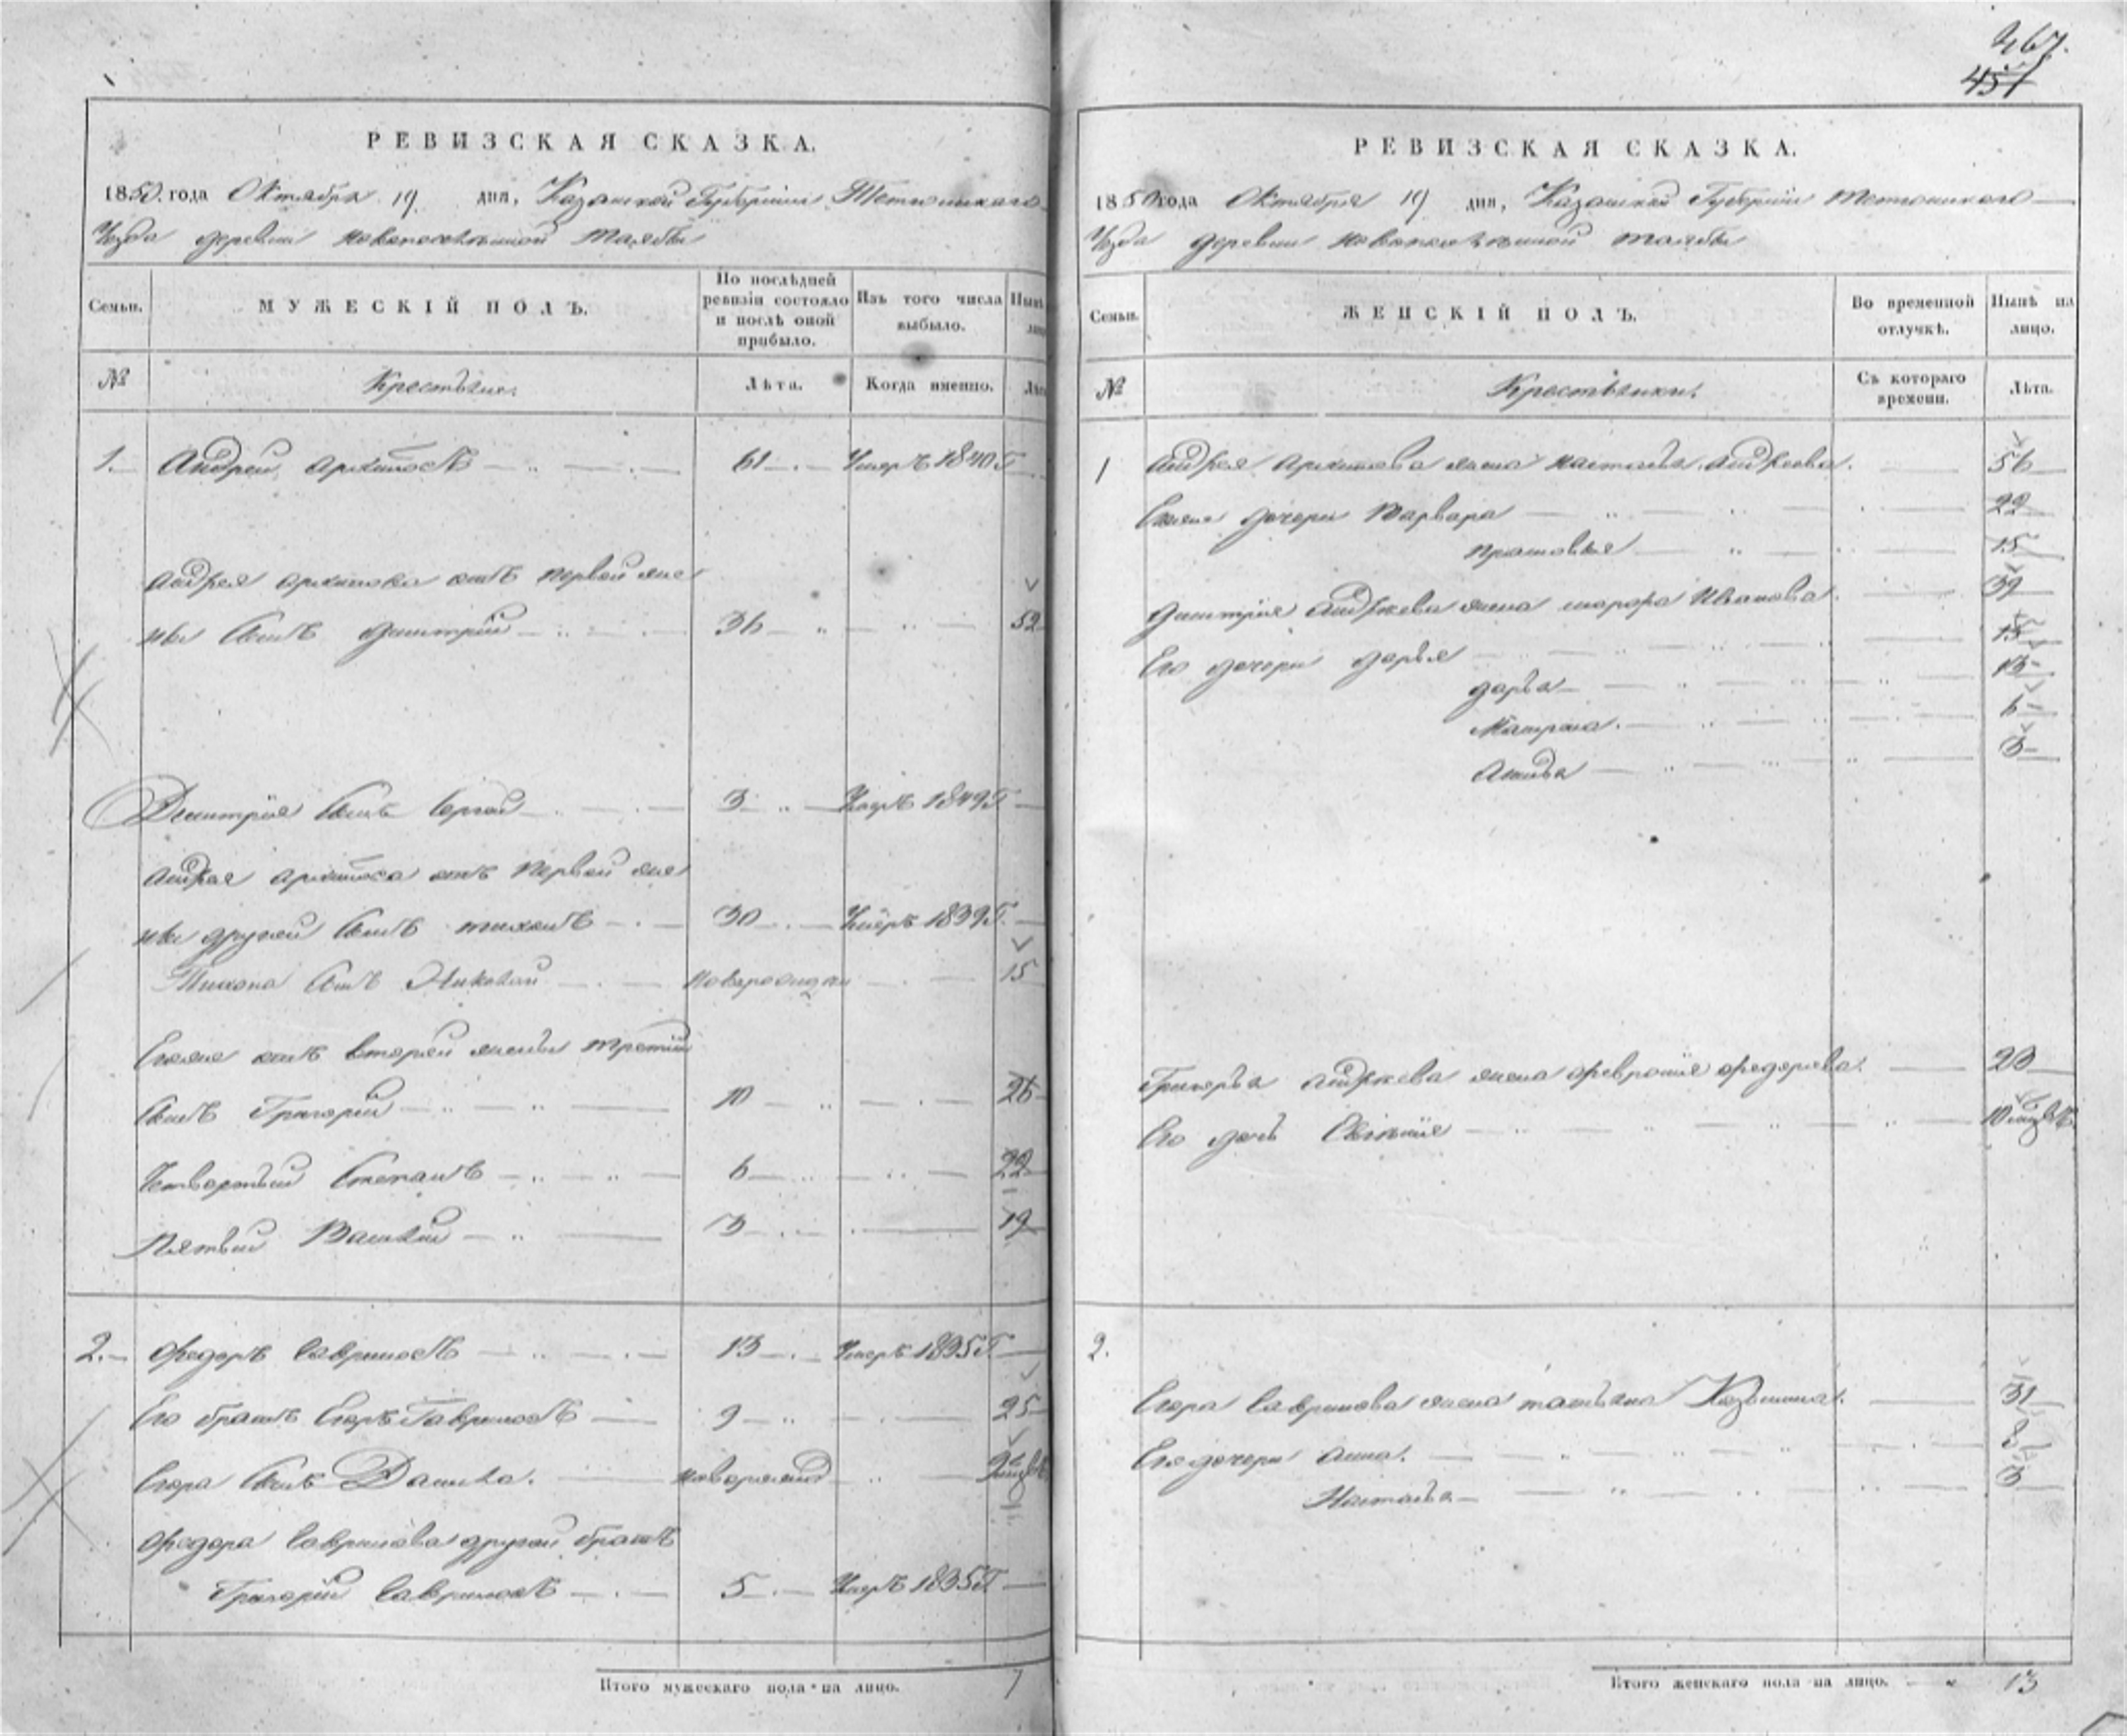 467.
457
РЕВИЗСКАЯ СКАЗКА.
1850. года Октября 19 дня, Казанской Губернии Тетюшскаго
Уезда деревни новопоселенной Таябы
Семьи. МУЖЕСКІЙ ПОЛЪ. По послѣдней ревизіи состояло и послѣ оной прибыло. Изъ того числа выбыло. Нынѣ
№ Крестьяне. Лѣта. Когда именно. Лѣта
1. Андрей Архиповъ 61 Умеръ 1840 Г
Андрея Архипова отъ первой же
ны Сынъ Дмитрій 36 52
Дмитрія Сынъ Сергей 3 Умеръ 1849 Г
Андрея Архипова отъ первой же
ны другой Сынъ тихонъ 30 Умеръ 1839 Г.
Тихона Сынъ Николай новорожден 15
Егоже отъ второй жены третій
Сынъ Григорій 10 26
Четвертый Степанъ 6 22
Пятый Василий 3 19
2. Федоръ Гавриловъ 13 Умеръ 1835 Г.
Его братъ Егоръ Гавриловъ 9 25
Егора Сынъ Данила. новорожд
Федора Гаврилова другой братъ
Григорій Гавриловъ 5 Умеръ 1835 Г
Итого мужескаго пола на лицо. 7
РЕВИЗСКАЯ СКАЗКА.
1850 года Октября 19 дня, Казанской Губерніи Тетюшскаго
Уезда деревни новопоселенной таябы
Семьи. ЖЕНСКІЙ ПОЛЪ. Во временной отлучкѣ. Нынѣ на лицо.
№ Крестьянки. Съ котораго времени. Лѣта.
1 Андрея Архипова жена Настасья Андреева. 56
Егоже дочери Варвара 22
Прасковья 15
Дмитрія Андреева жена Иванова. 39
Его дочери Дарья 15
дарья 13
Матрона. 6
3
Григорья Андреева жена Февронія Федорова. 23
Его дочь Евгенія 10
2.
Егора Гаврилова жена татьяна Козьмина. 31
Его дочери Анна. 8
Настасья 3
Итого женскаго пола на лицо. 13